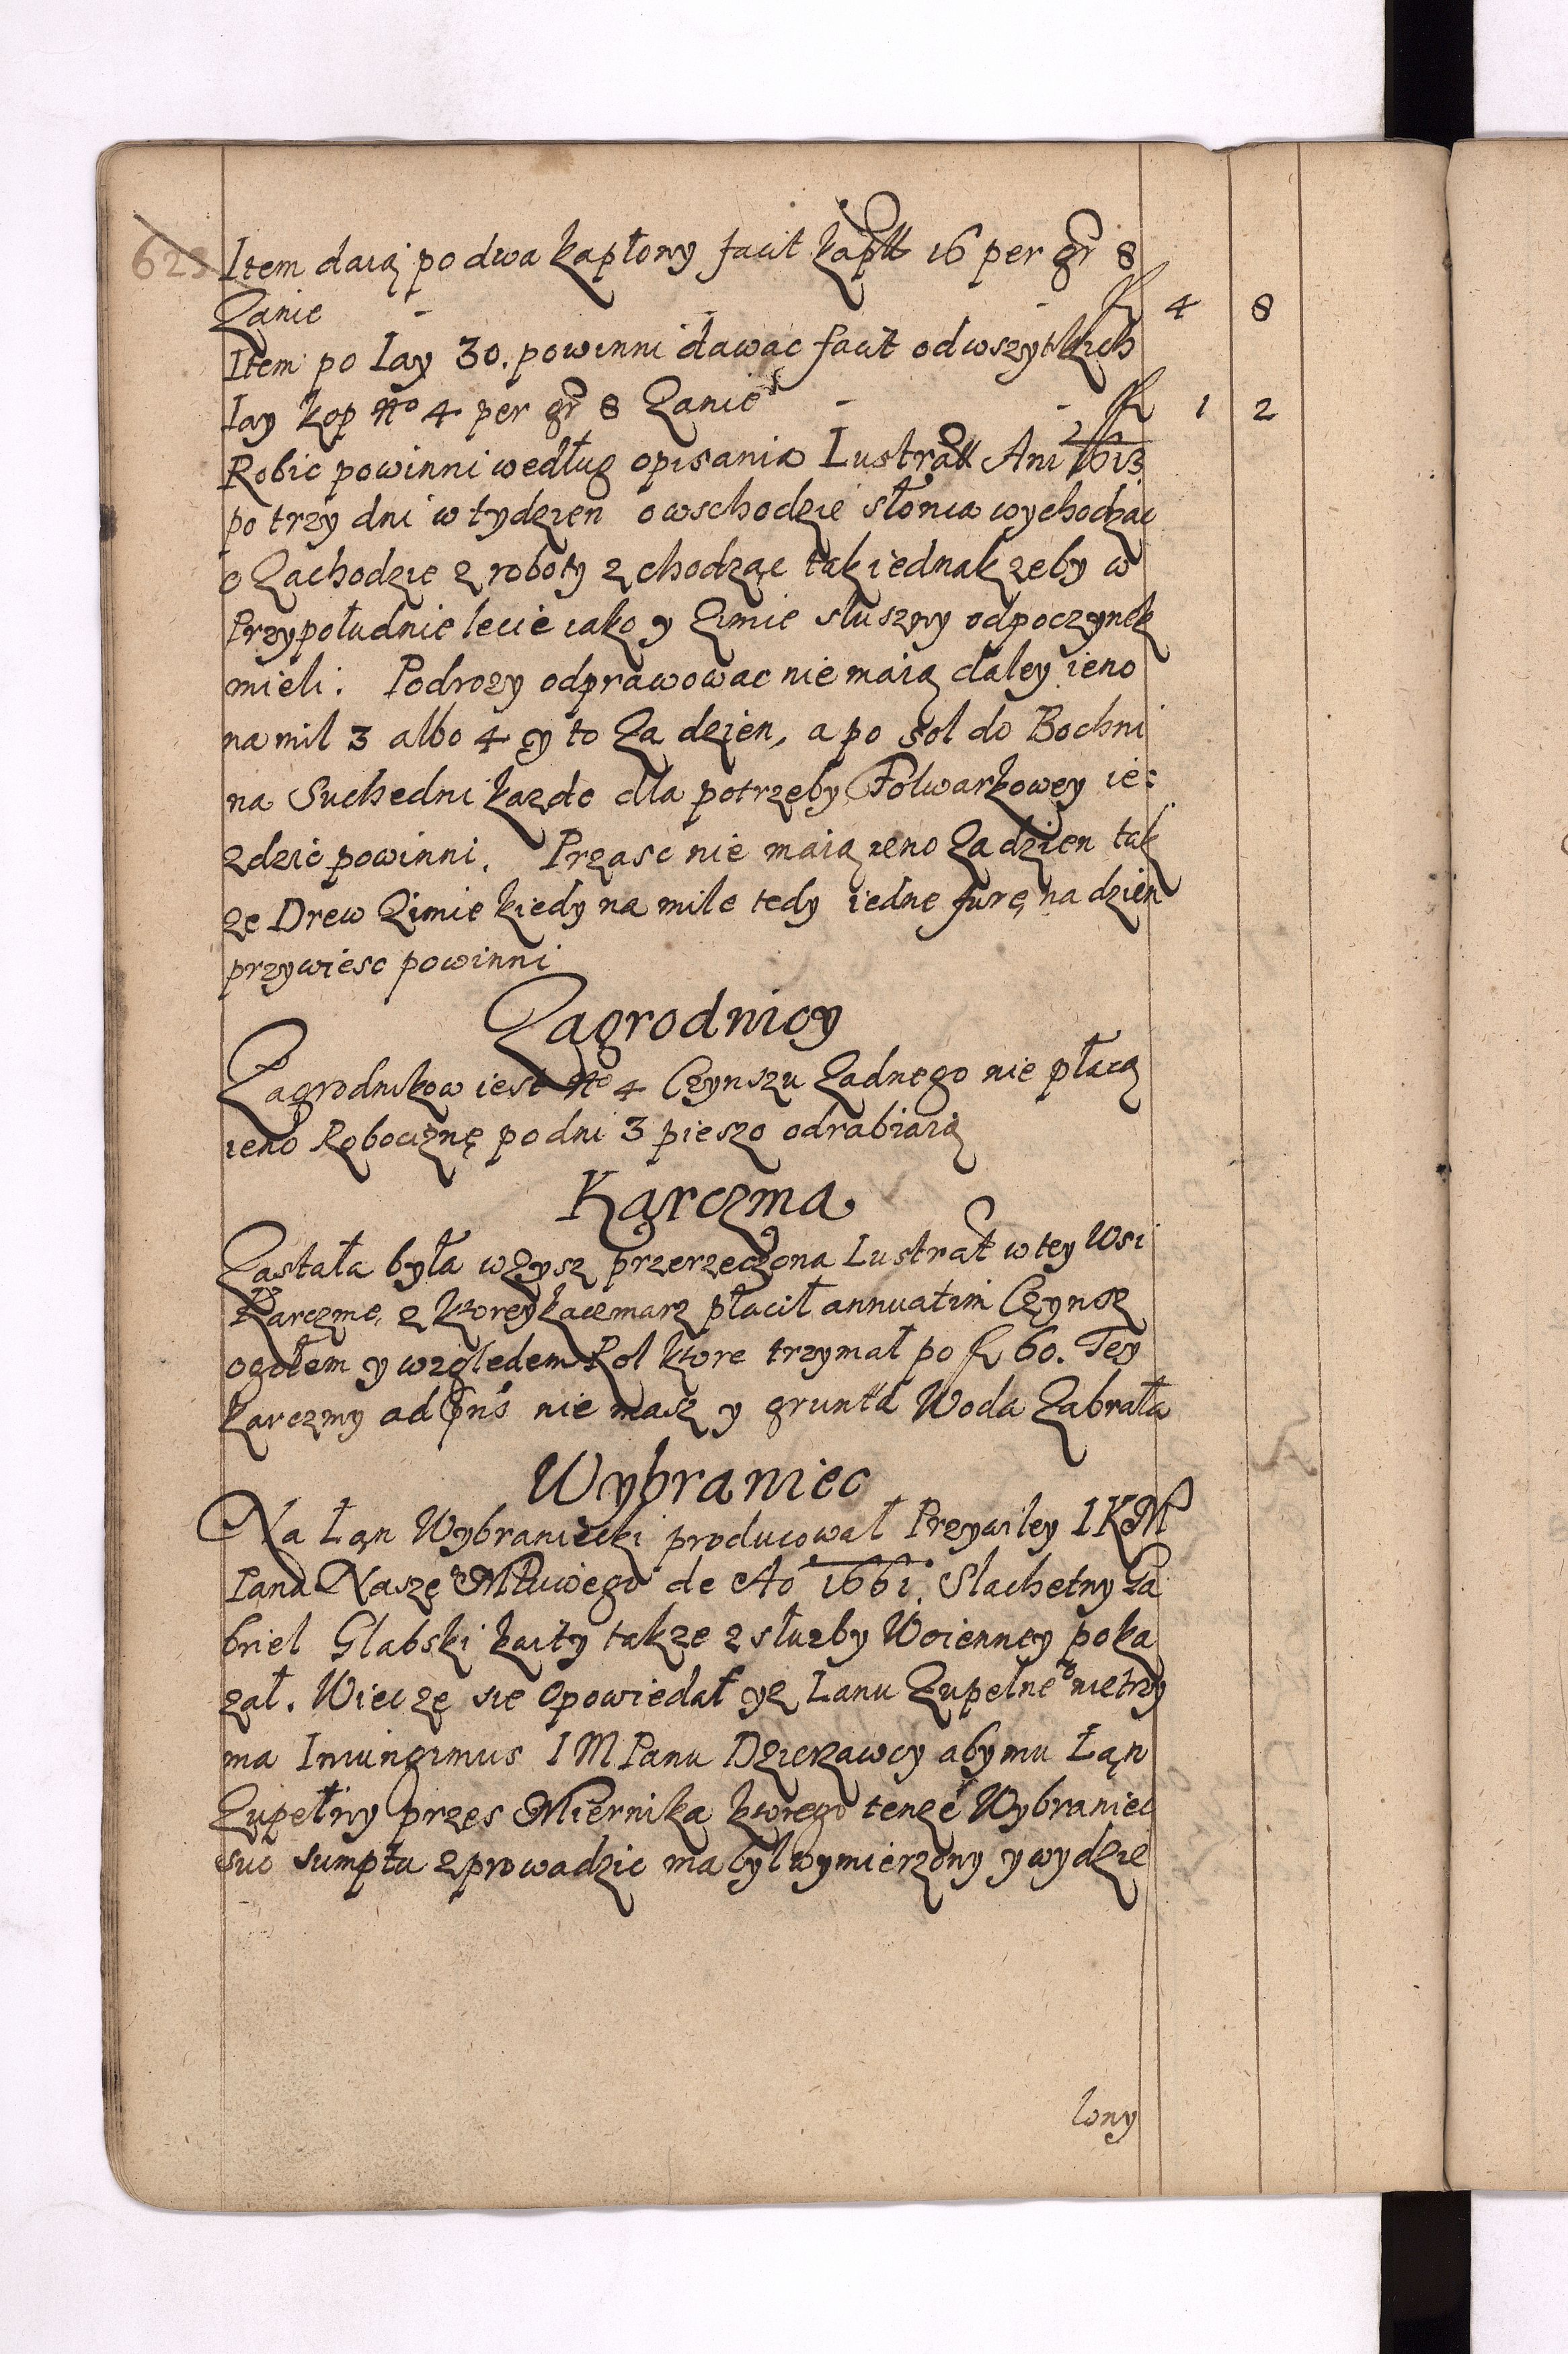 623
Item daią po dwa kapłony facit kapłł 16 per gr 8
Zanie - - fl 4 8
Item po Iay 30. powinni dawac facit od wszytkich
Iay kop No 4 per gr 8 Zanie - - fl 1 2
Robic powinni według opisania Lustrałł Ani 1613
po trzy dni w tydzien o wschodzie słonca wychodząc
o Zachodzie z roboty zchodząc tak iednak zeby w
Przypołudnie lecie iako y Zimie słuszny odpoczynek
mieli. Podrozy odprawowac nie maią daley ieno
na mil 3 albo 4 y to Za dzien, a po sol do Bochni
na Suchedni kazde dla potrzeby Folwarkowey ie:
zdzic powinni. Prząsc nie maią ieno Za dzien tak
ze Drew Zimie kiedy na mile tedy iedne furę na dzien
przywiesc powinni
Zagrodnicy
Zagrodnikow iest No 4 Czynszu Zadnego nie płacą
ieno Robociznę po dni 3 pieszo odrabiaią
Karczma
Zastała była wzysz przerzeczona Lustrał w tey Wsi
Karczmę, z ktorey kaczmarz płacił annuatim Czynsz
ogołem y względem Rol ktore trzymał po fl 60. Tey
karczmy ad pns nie masz y grunta Woda Zabrała
Wybraniec
Na Łąn Wybraniecki producował Przywiley I K M
Pana Naszego Młciwego de Ao 1661. Slachetny Ga
briel Glabski kwity takze z słuzby Woienney poka
zał. Wiec ze sie Opowiedał yz Lanu Zupełnego nie trzy
ma Iniungimus I M Panu Dzierzawcy aby mu Łąn
Zupełny przes Miernika ktorego tenze Wybraniec
suo sumptu zprowadzic ma był wymierzony y wydzie
lony